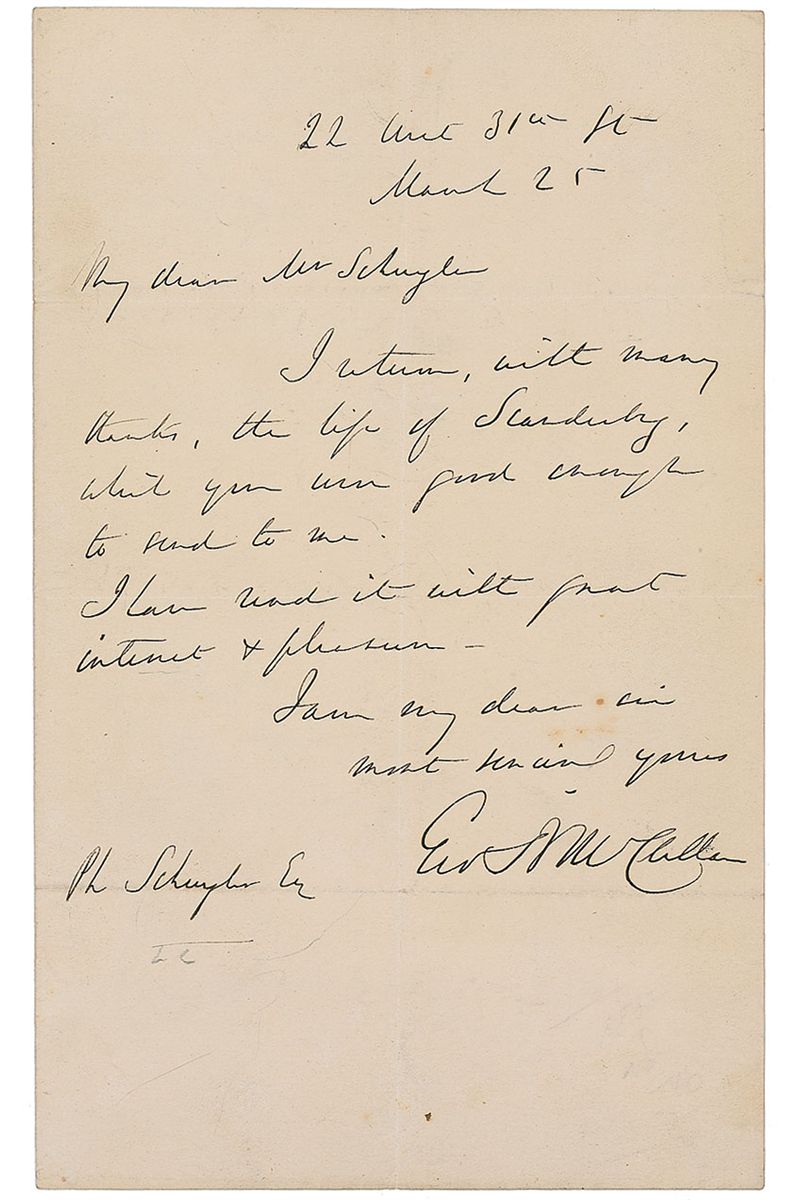 22 West 31st St
March 25
My dear Mr Schuyler
I return, with many
thanks, the life of Scanderbeg,
which you were good enough
to send to me.
I have read it with great
interest & pleasure -
I am my dear sir
most sincerely yours
Geo B McClellan
Ph Schuyler Esq